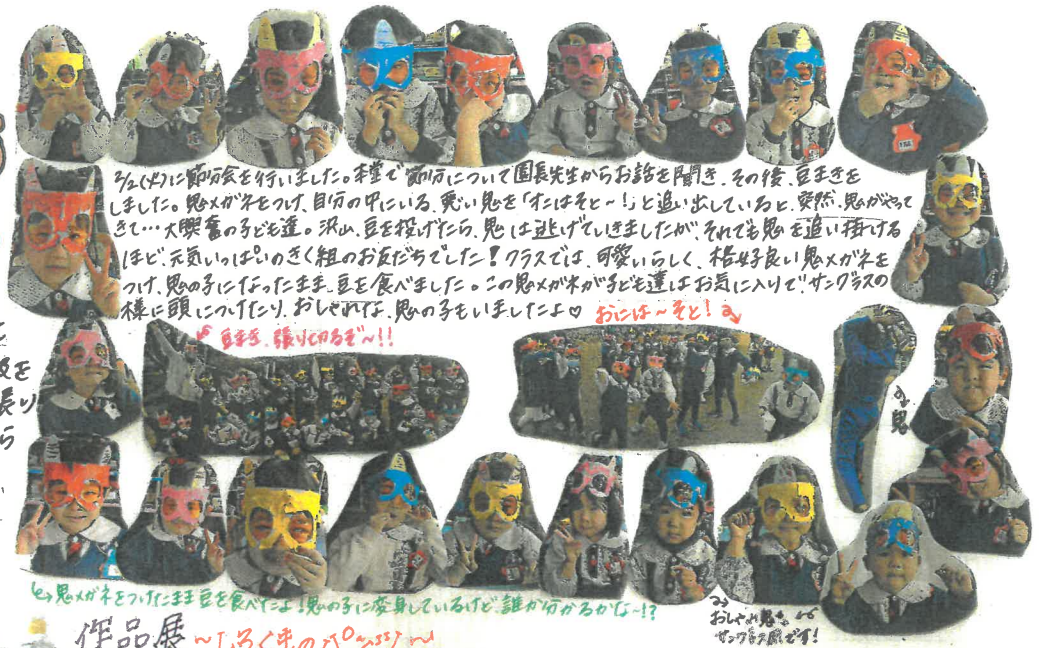 2/2(火)に節分会を行いました。本堂で節分について園長先生からお話を聞き、その後、豆まきを
しました。鬼メガネをつけ、自分の中にいる、悪い鬼を「オニはそと～！」と追い出していると、突然、鬼がやって
きて…大興奮の子ども達。沢山、豆を投げたら、鬼は逃げていきましたが、それでも鬼を追い掛ける
ほど、元気いっぱいのきく組のお友だちでした！クラスでは、可愛いらしく、格好良い鬼メガネを
つけ、鬼の子になったまま、豆を食べました。この鬼メガネが子ども達はお気に入りで、サングラスの
様に頭につけたり、おしゃれな、鬼の子もいましたよ♡ おには～そと！
豆まき、張り切るぞ～！！
鬼
鬼メガネをつけたまま豆を食べたよ！鬼の子に変身しているけど、誰か分かるかな～！？
おしゃれ鬼も
サングラス風です！
作品展 ～しろくまのパンツ～
を
張り
ら